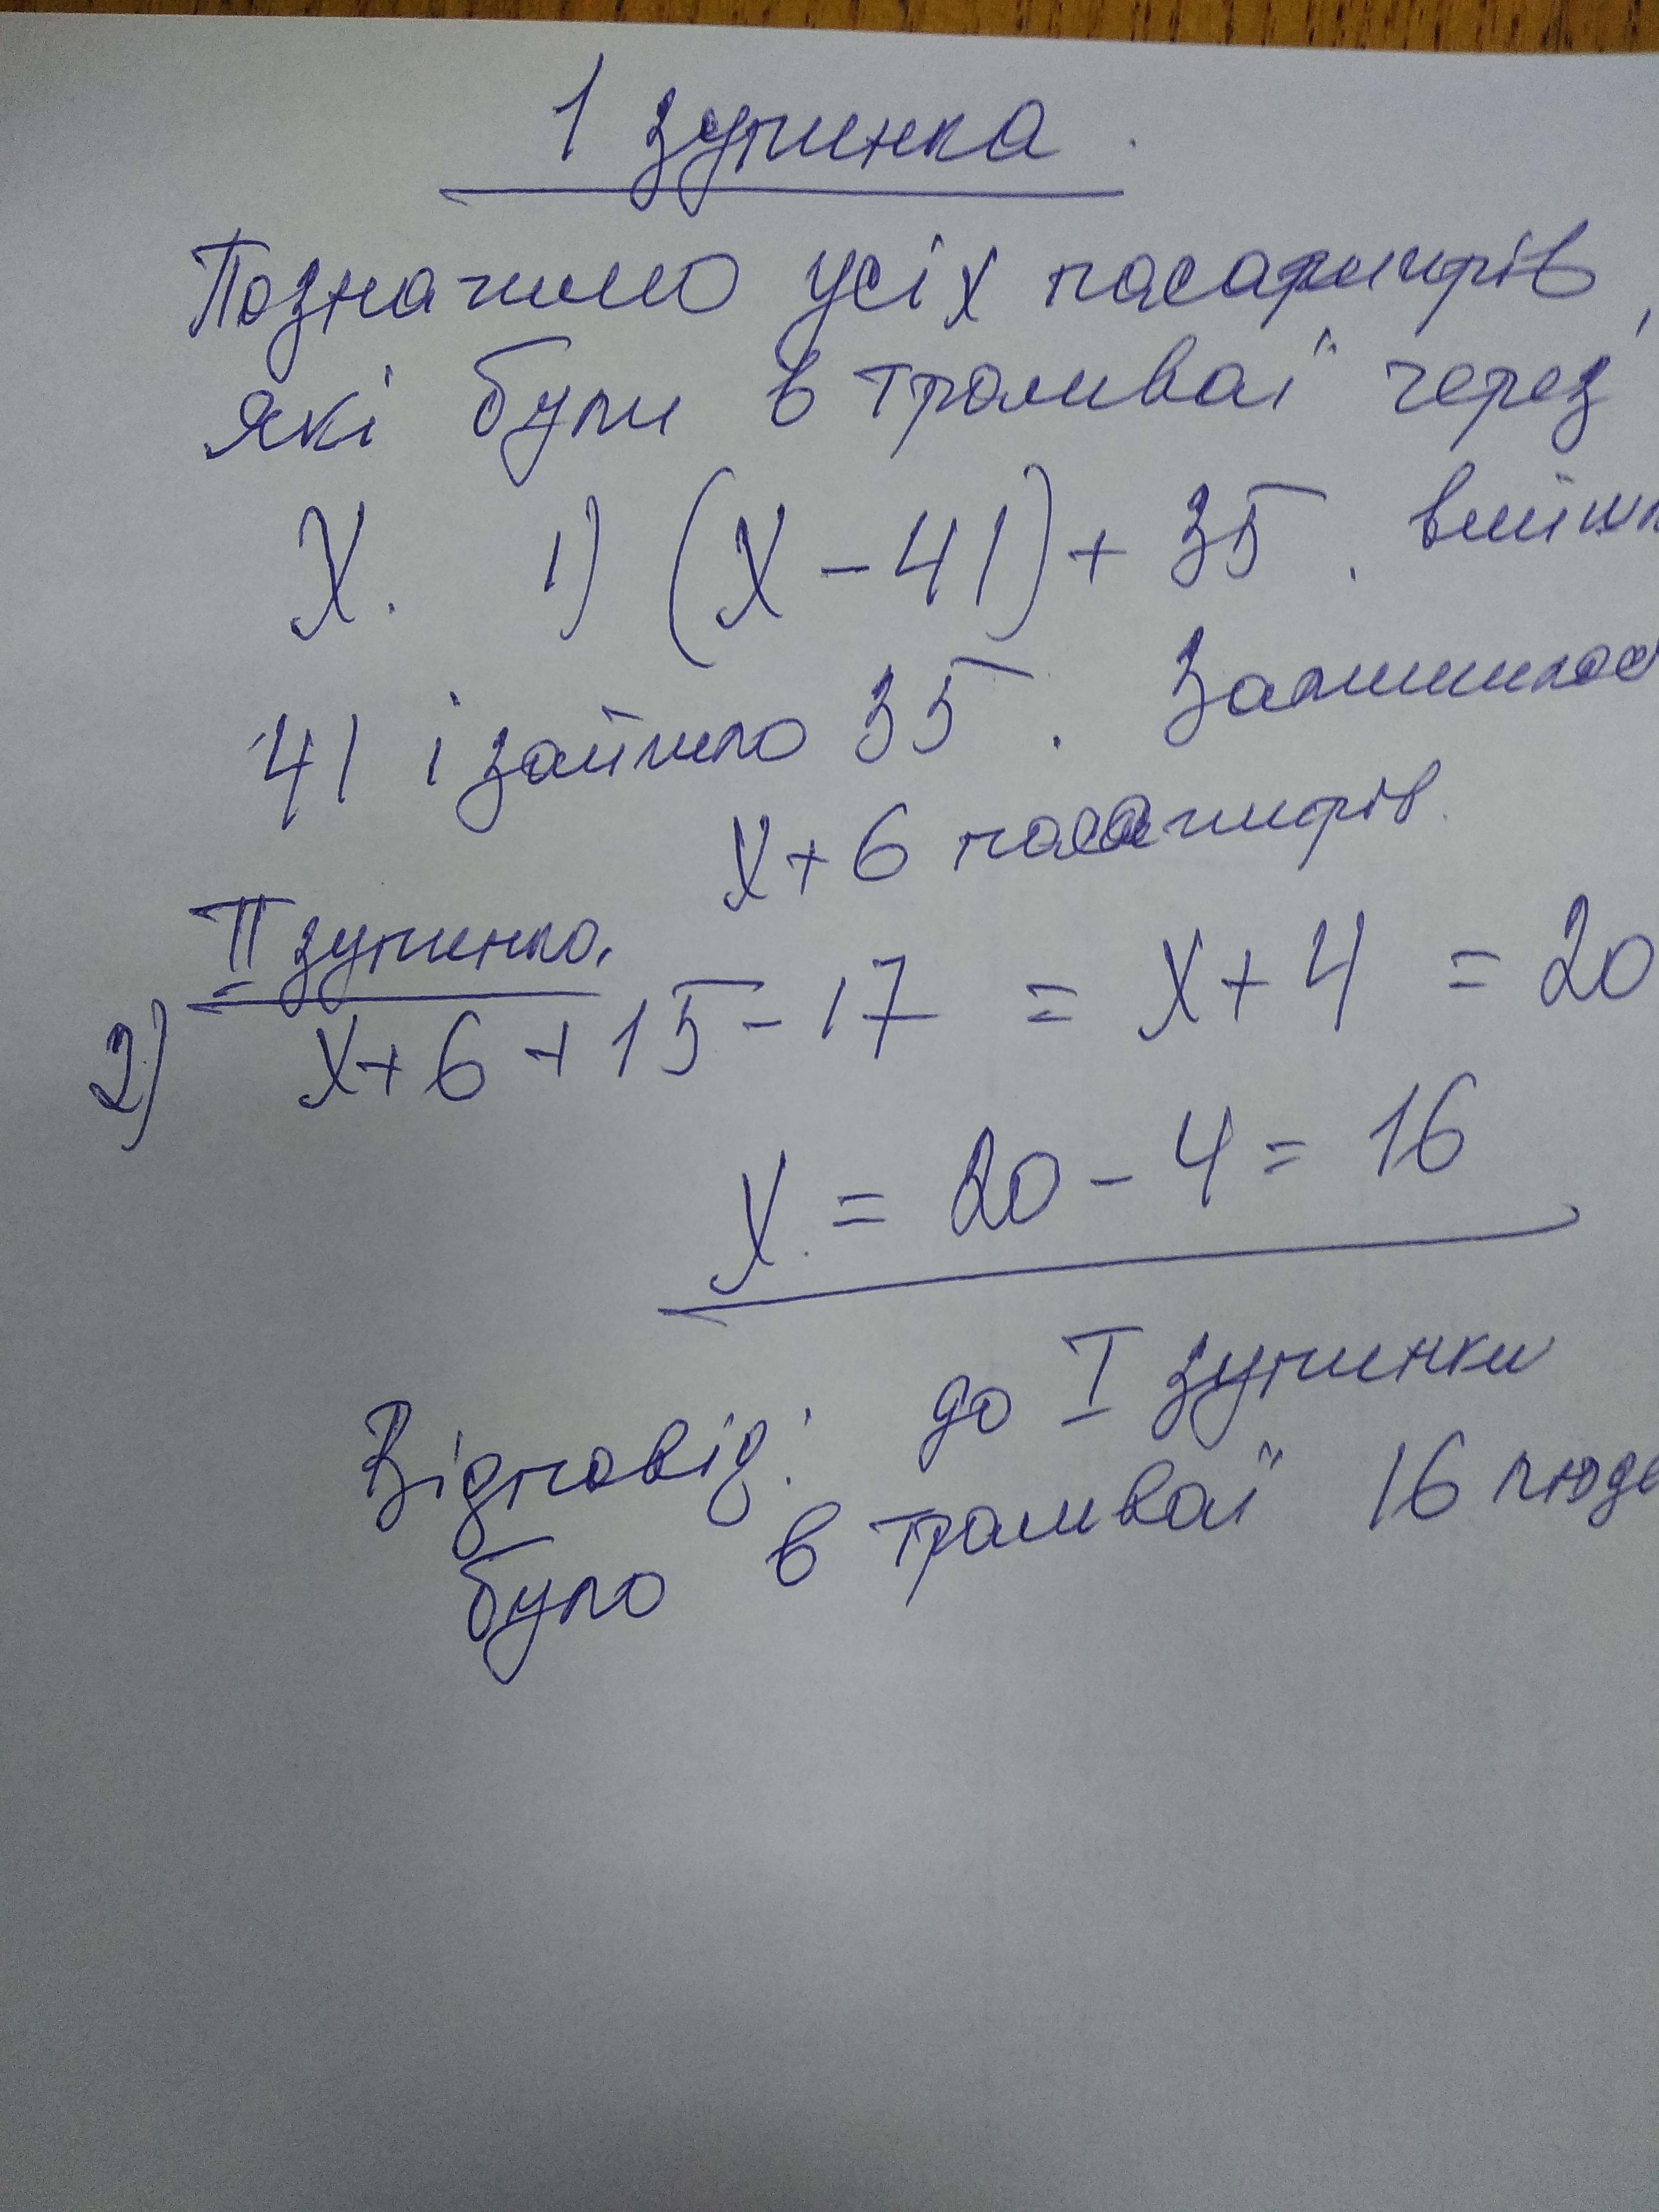 1 зупинка.
Позначимо усіх пасажирів,
які були в трамваї через
X. 1) (X - 41) + 35. вийшл
41 і зайшло 35. Залишилос
X + 6 пасажирів.
II зупинка.
2) X + 6 + 15 - 17 = X + 4 = 20
X = 20 - 4 = 16
Відповід: до I зупинки
було в трамваї 16 люде